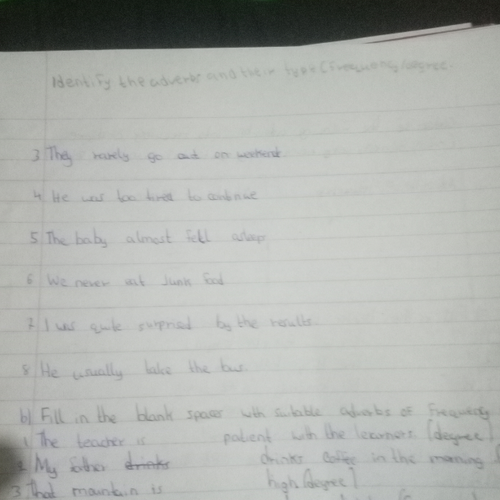 Identify the adverbs and their type (frequency/degree.
3 They rarely go out on
4 He was too tired to continue
5 The baby almost fell asleep
6 We never eat Junk food
7 I was quite surprised by the results.
8 He usually take the bus.
b) Fill in the blank spaces with suitable adverbs of Frequency
1. The teacher is patient with the learners. [degree]
2. My father drinks drinks coffee in the morning
3 That mountain is high [degree]